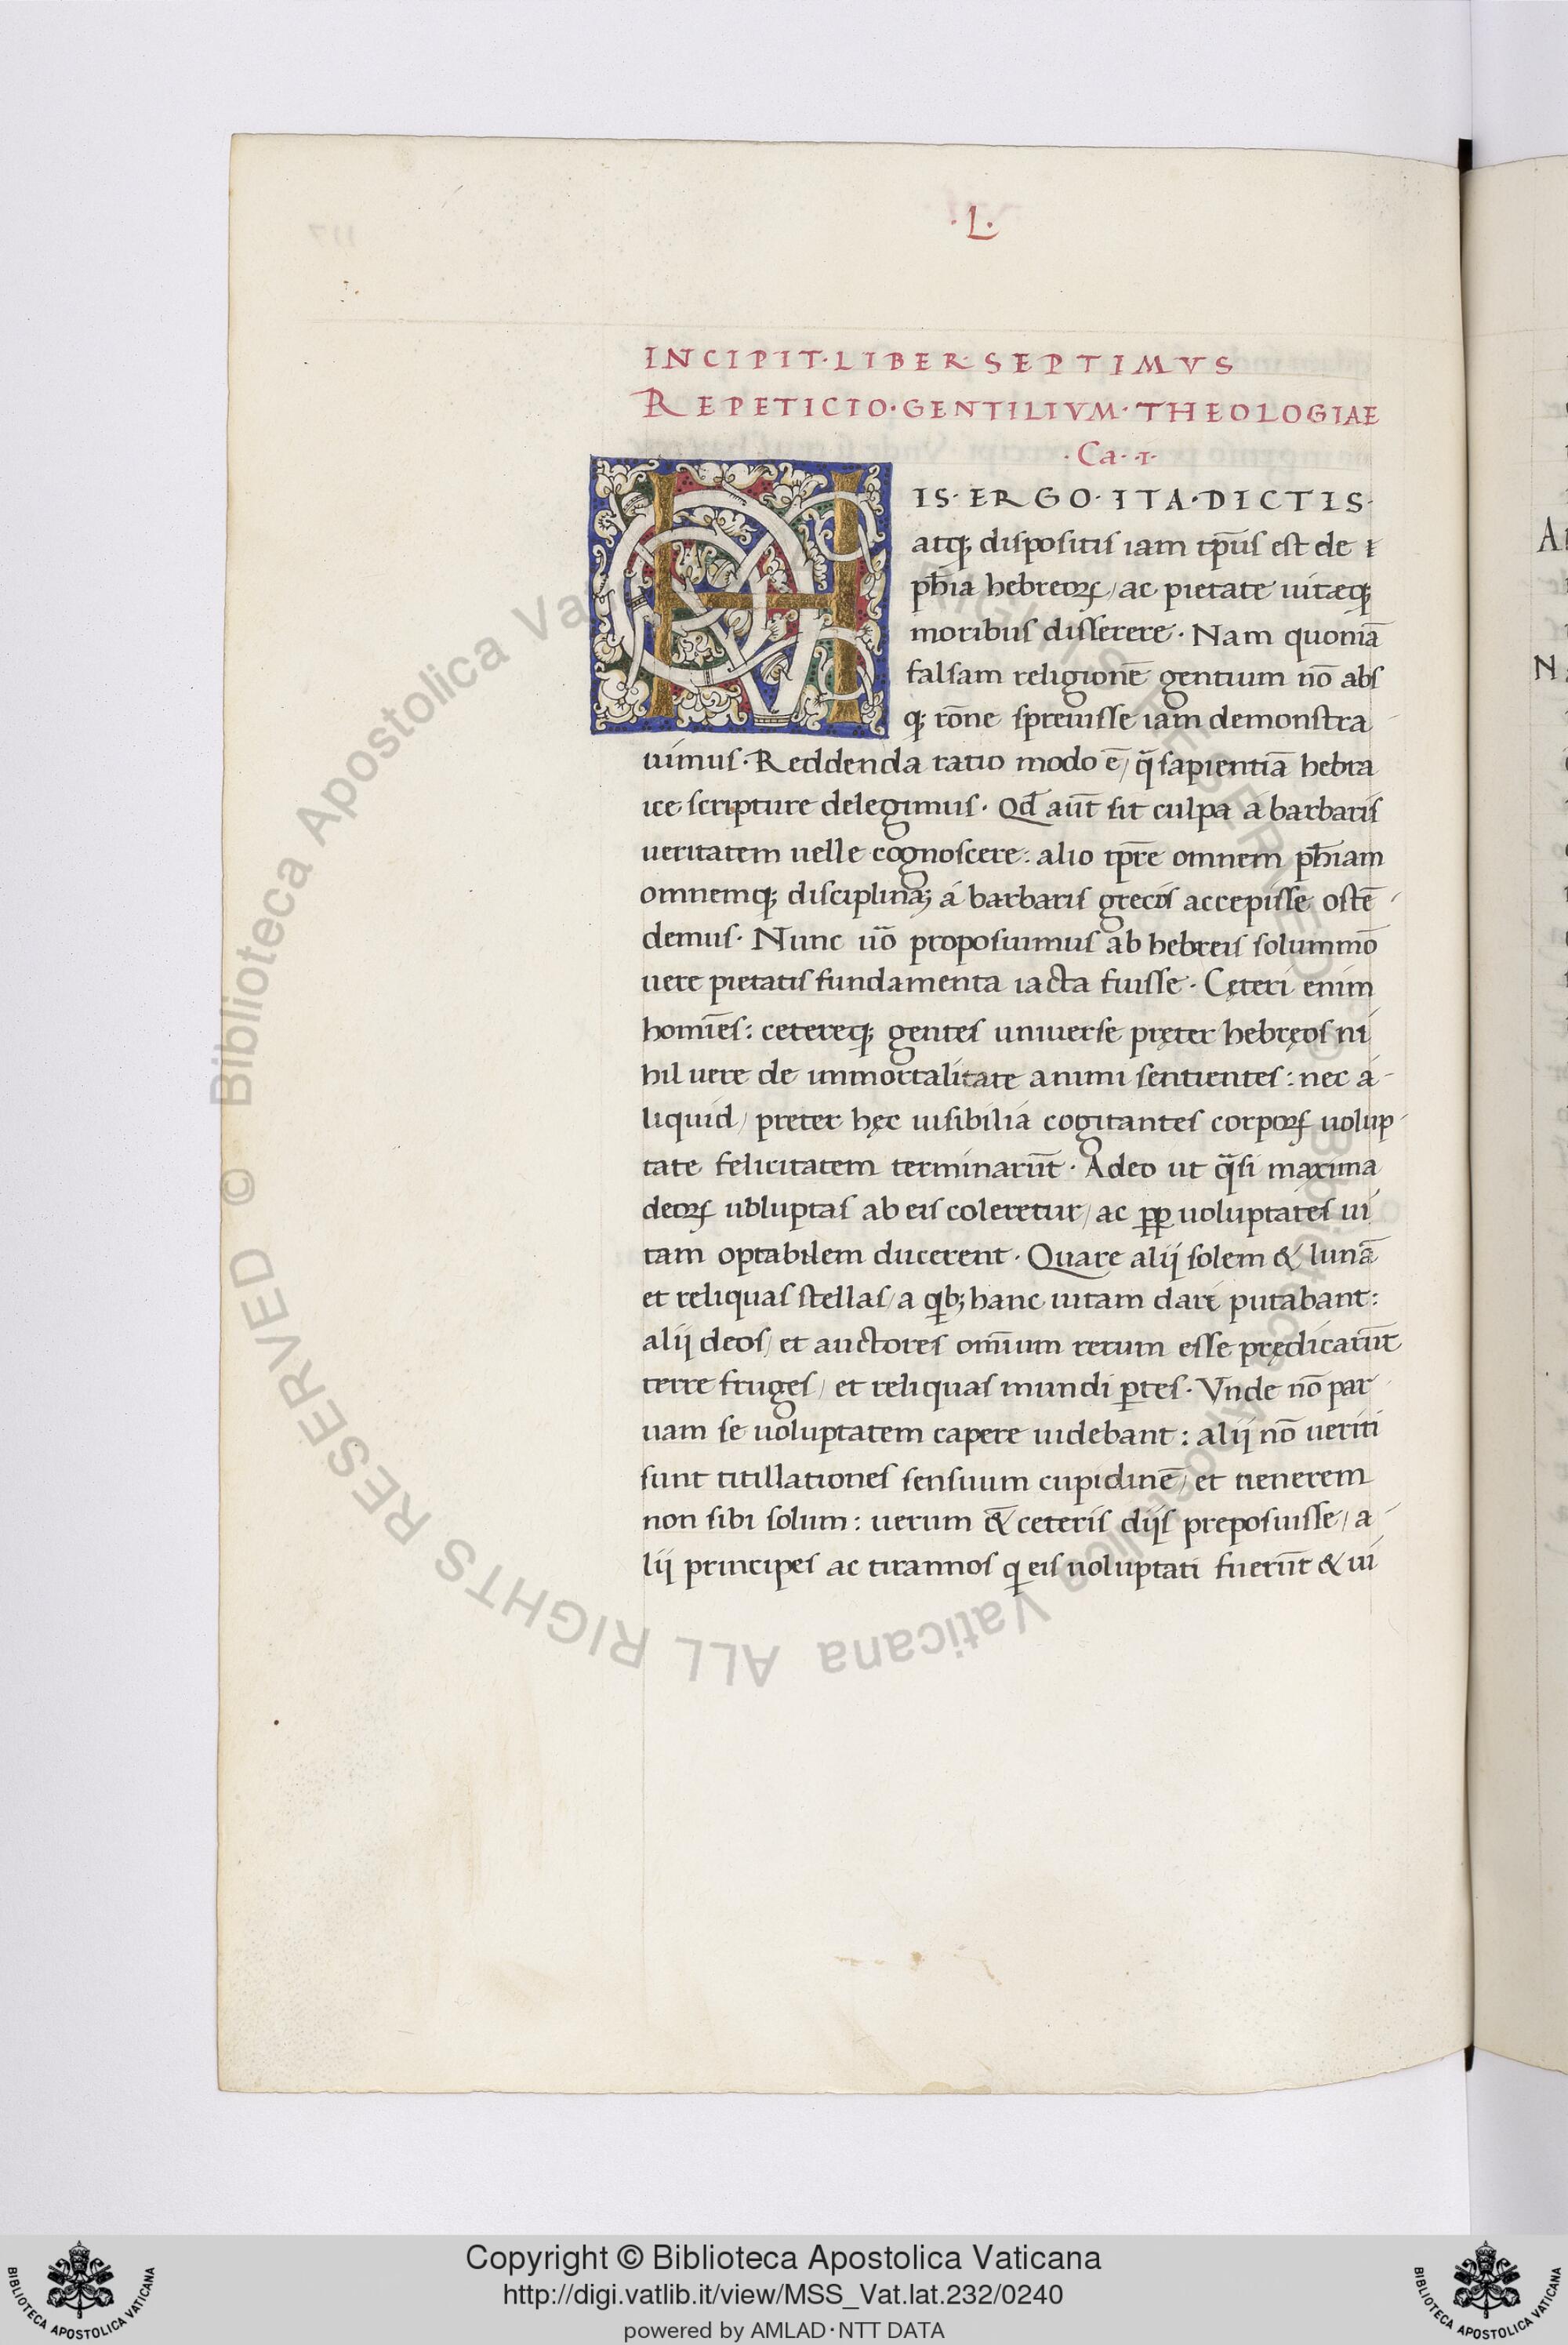 ·L·
INCIPIT·LIBER·SEPTIMVS
REPETICIO·GENTILIVM·THEOLOGIAE
·Ca··1·
HIS·ERGO·ITA·DICTIS·
atq; dispositis iam tp̄us est de
ph̄ia hebreoꝝ/ac pietate uitæq;
moribus disserere· Nam quoniā
falsam religionē gentium nō abs
q; rōne spreuisse iam demonstra
uimus· Reddenda ratio modo ē/ q̄ sapientiā hebra
ice scripture delegimus· Qd̄ aūt sit culpa a barbaris
ueritatem uelle cognoscere: alio tp̄re omnem ph̄iam
omnemq; disciplinaꝫ a barbaris grecos accepisse ostē
demus· Nunc uō proposuimus ab hebreis solummō
uere pietatis fundamenta iacta fuisse· Cęteri enim
homīes: cetereq; gentes uniuerse pręter hebręos ni
hil uere de immortalitate animi sentientes: nec a-
liquid/ preter hęc uisibilia cogitantes corpoꝝ uolup-
tate felicitatem terminarūt· Adeo ut q̄si maxima
deoꝝ uoluptas ab eis coleretur/ ac ꝓꝑ uoluptates ui
tam optabilem ducerent· Quare alij solem & lunā
et reliquas stellas/ a qib; hanc uitam dari putabant:
alij deos/ et auctores om̄ium rerum esse prędicarūt
terre fruges/ et reliquas mundi ꝑtes· Vnde nō par
uam se uoluptatem capere uidebant: alij nō ueriti
sunt titillationes sensuum cupidinē/ et uenerem
non sibi solum: uerum & ceteris dijs preposuisse/ a-
lij principes ac tirannos q eis uoluptati fuerūt & ui
© Biblioteca Apostolica Vaticana ALL RIGHTS RESERVED
© Biblioteca Apostolica Vaticana ALL RIGHTS RESERVED
BIBLIOTECA APOSTOLICA VATICANA
Copyright © Biblioteca Apostolica Vaticana
http://digi.vatlib.it/view/MSS_Vat.lat.232/0240
powered by AMLAD·NTT DATA
BIBLIOTECA APOSTOLICA VATICANA